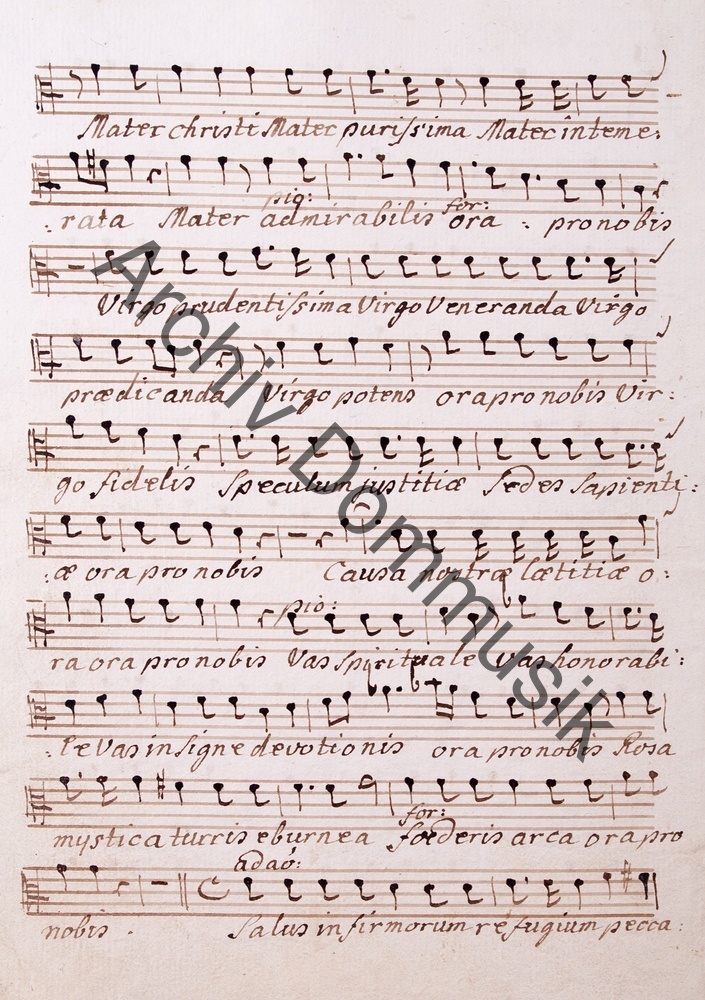 Mater christi Mater purissima Mater inteme:
:rata Mater admirabilis ora : pro nobis
pio: for:
Virgo prudentissima Virgo Veneranda Virgo
prædicanda Virgo potens ora pro nobis Vir:
go fidelis Speculum justitiæ Sedes Sapienti:
:æ ora pro nobis Causa nostræ lætitiæ o:
pio:
ra ora pro nobis Vas spirituale Vas honorabi:
:le Vas insigne devotionis ora pro nobis Rosa
mystica turris eburnea fœderis arca ora pro
for:
adaó:
nobis . Salus infirmorum refugium pecca:
Archiv Dommusik